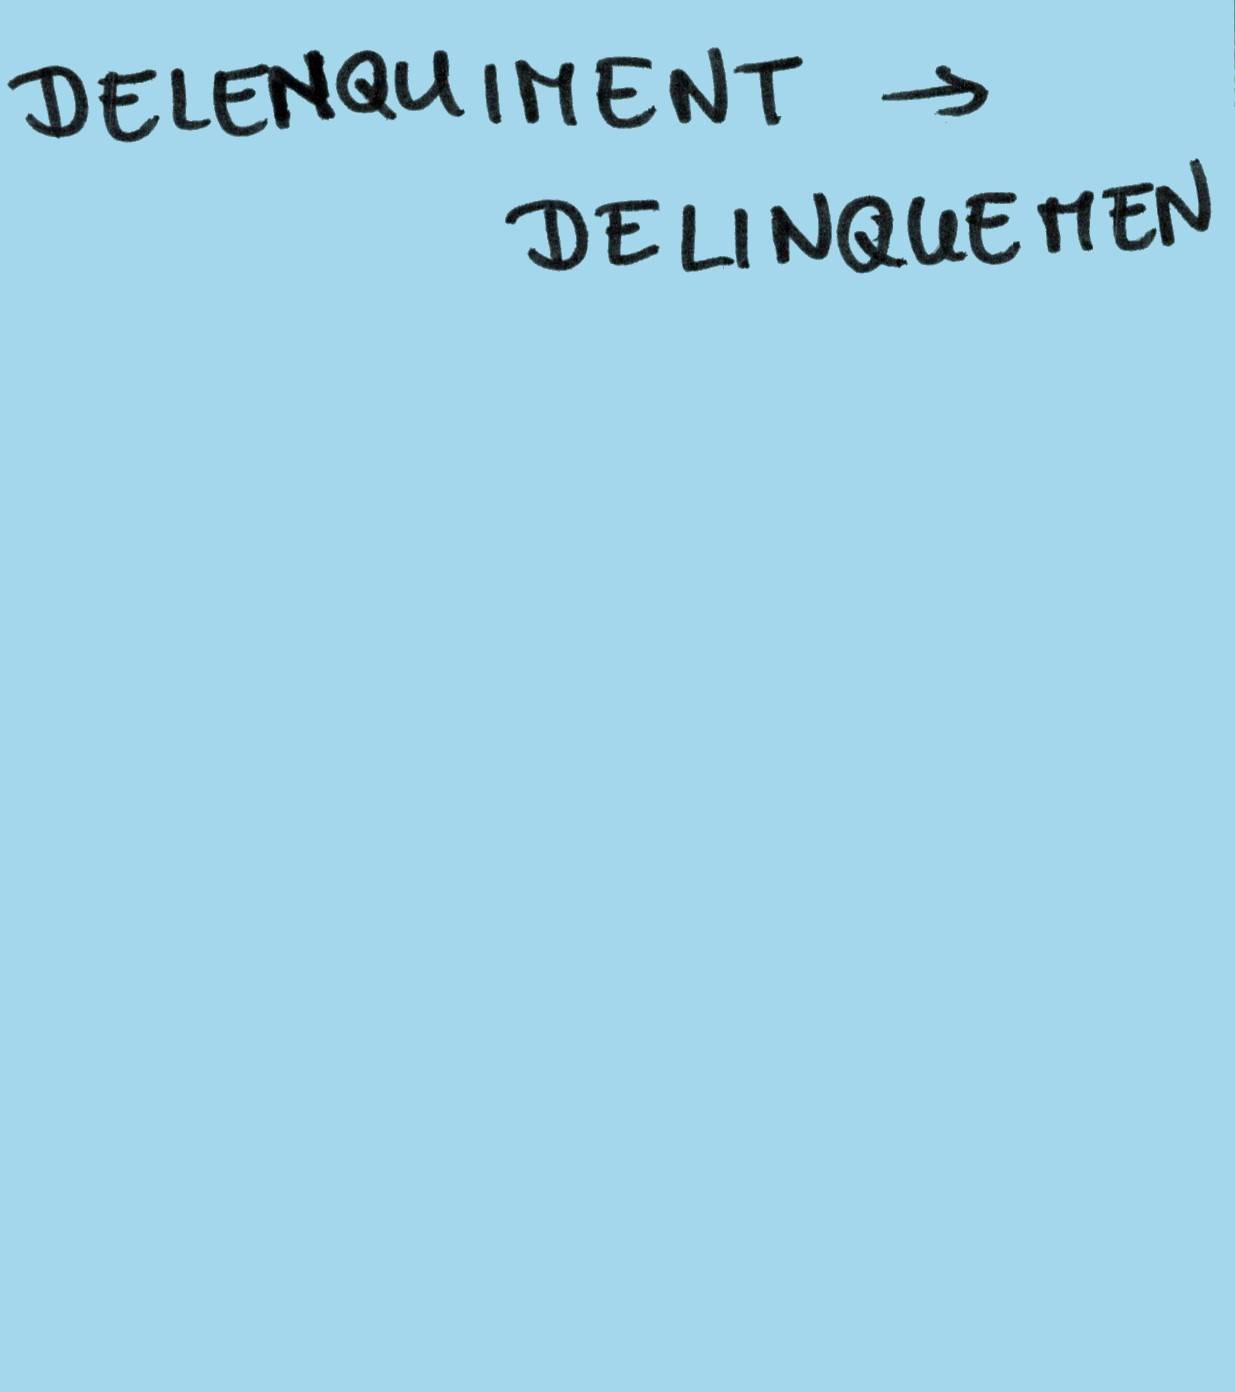 DELENQUIMENT →
DELINQUEMEN